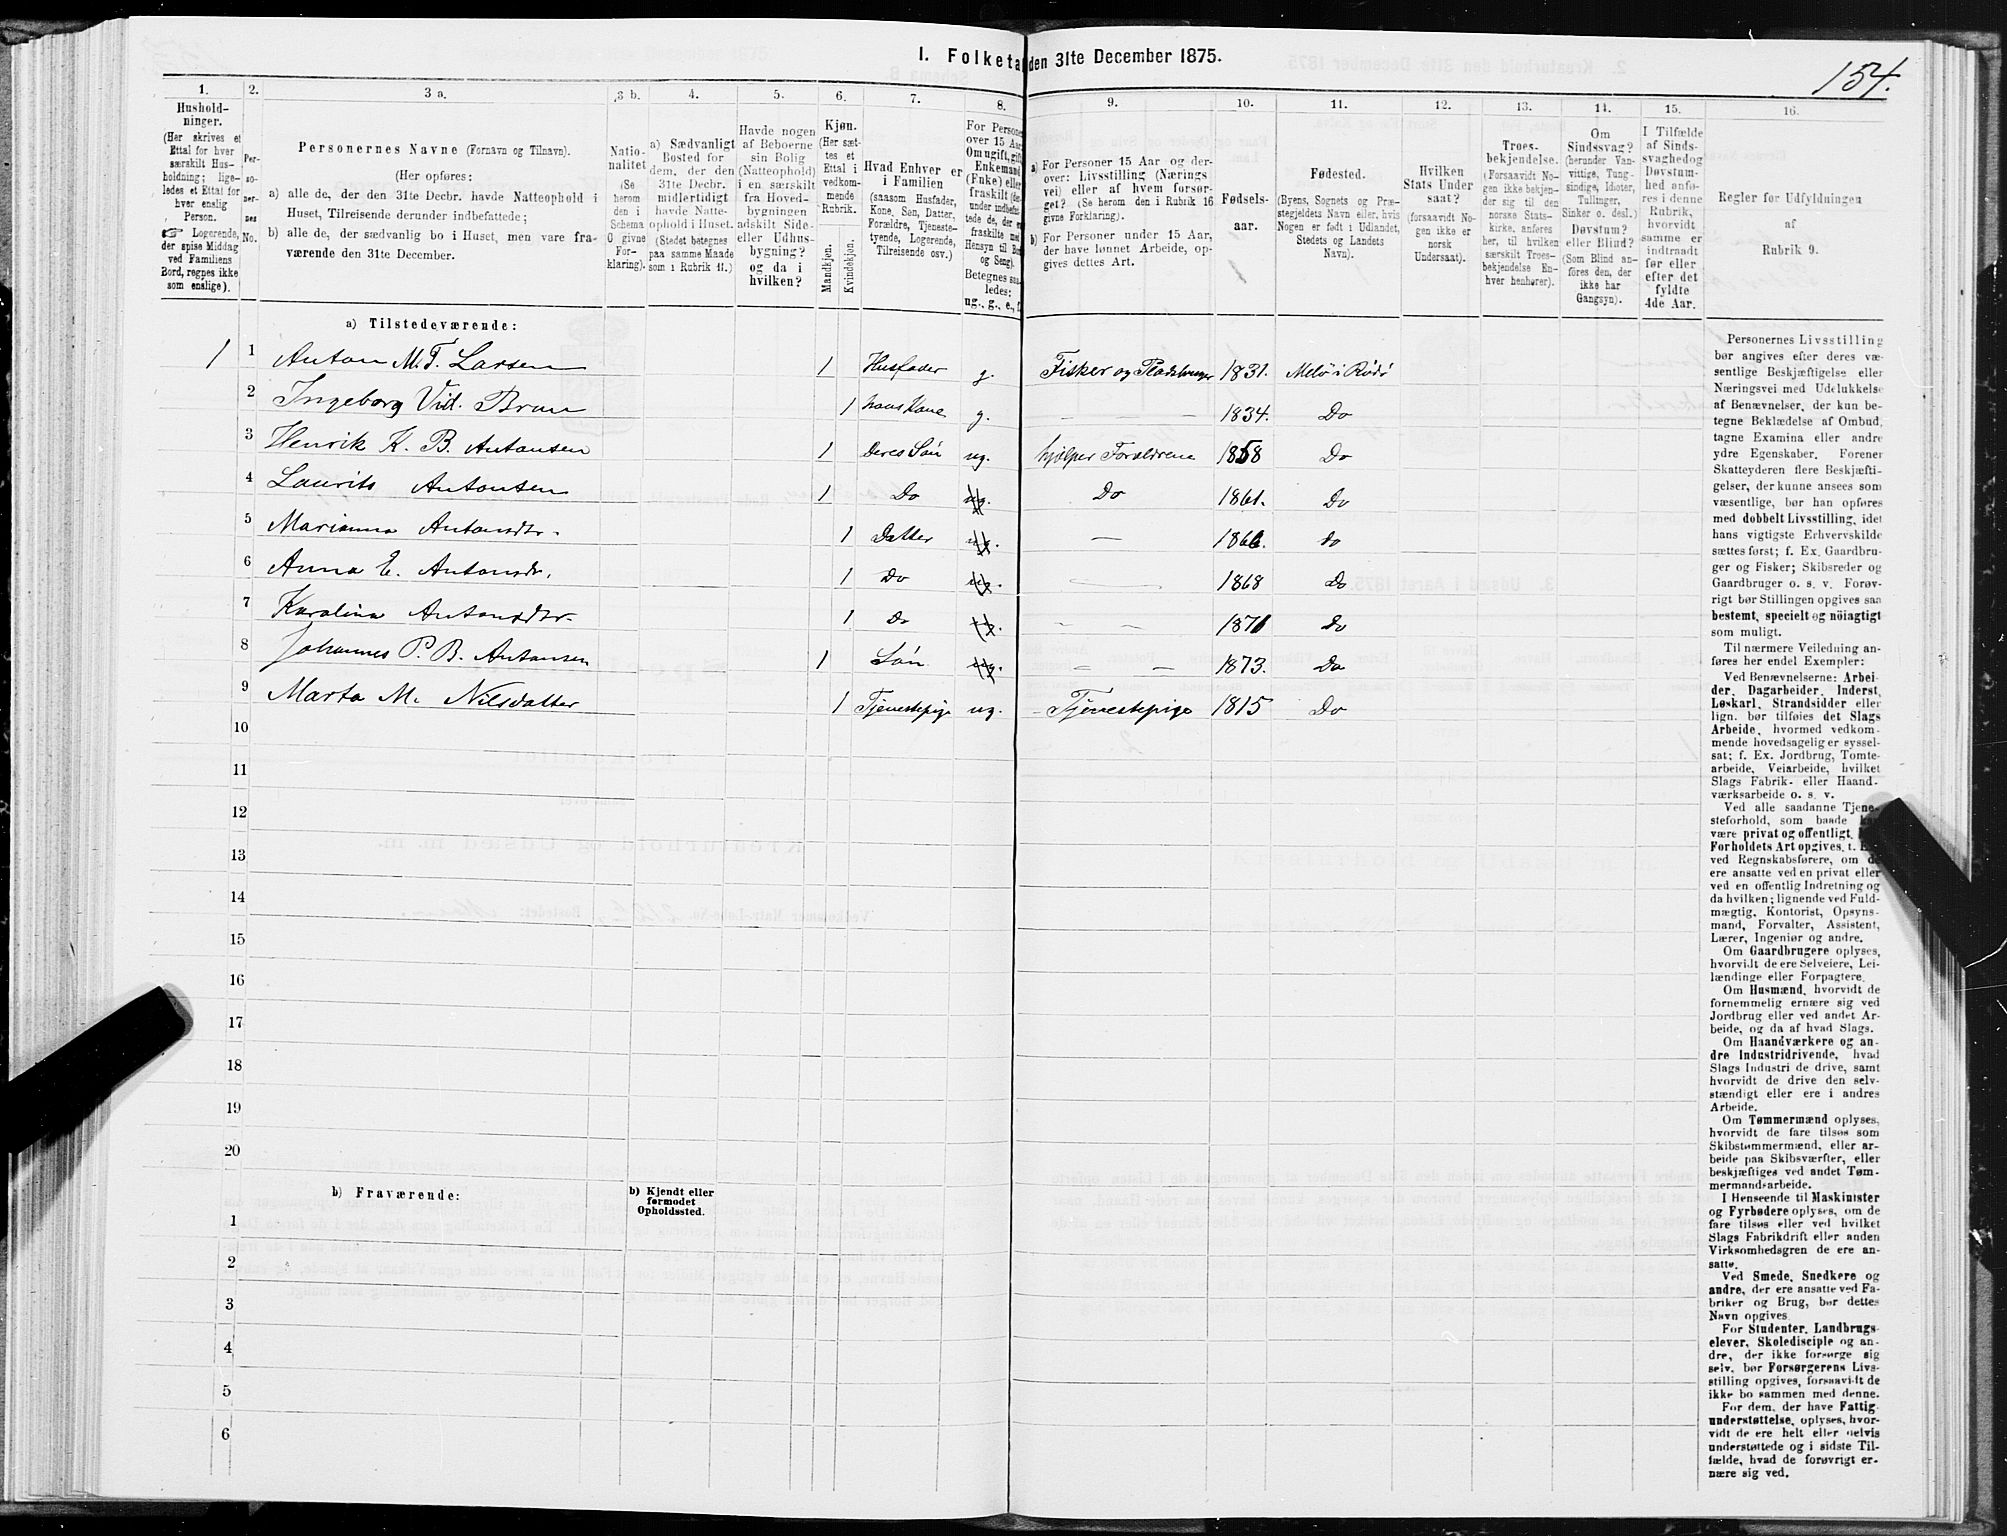 I. Folketa den 31te December 1875.
154.
1. 2. 3 a. 3 b. 4. 5. 6. 7. 8. 9. 10. 11. 12. 13. 14. 15. 16.
Hushold-
ninger.
(Her skrives et
Ettal for hver
særskilt Hus-
holdning; lige-
ledes et Ettal for
hver enslig
Person.
☞ Logerende,
der spise Middag
ved Familiens
Bord, regnes ikke
som enslige).
Per-
so-
ner-
nes
No.
Personernes Navne (Fornavn og Tilnavn).
(Her opføres:
a) alle de, der den 31te Decbr. havde Natteophold i
Huset, Tilreisende derunder indbefattede;
b) alle de, der sædvanlig bo i Huset, men vare fra-
værende den 31te December.
Natio-
nalitet
(Se
herom
den i
Schema
G givne
For-
klaring).
a) Sædvanligt
Bosted for
dem, der den
31te Decbr.
midlertidigt
havde Natte-
ophold i Huset.
(Stedet betegnes
paa samme Maade
som i Rubrik 11.)
Havde nogen
af Beboerne
sin Bolig
(Natteophold)
i en særskilt
fra Hoved-
bygningen
adskilt Side-
eller Udhus-
bygning?
og da i
hvilken?
Kjøn.
(Her sæt-
tes et
Ettal i
vedkom-
mende
Rubrik.
Mandkjøn.
Kvindekjøn.
Hvad Enhver er
i Familien
(saasom Husfader,
Kone, Søn, Datter,
Forældre, Tjeneste-
tyende, Logerende,
Tilreisende osv.)
For Persone
over 15 Aar
Om ugift, gift
Enkemand
(Enke) eller
fraskilt
Hensyn til Bo
og Seng).
Betegnes saa-
ledes:
ug., g., e., f.
a) For Personer 15 Aar og der-
over: Livsstilling (Nærings
vei) eller af hvem forsør-
get? (Se herom den i Rubrik 16
givne Forklaring).
b) For Personer under 15 Aar,
der have lønnet Arbeide, op-
gives dettes Art.
Fødsels-
aar.
Fødested.
(Byens, Sognets og Præ-
stegjeldets Navn eller, hvis
Nogen er født i Udlandet,
Stedets og Landets
Navn).
Hvilken
Stats Under
saat?
(forsaavidt No-
gen ikke er
norsk
Undersaat).
Troes-
bekjendelse.
(Forsaavidt No-
gen ikke bekjen-
der sig til den
norske Stats-
kirke, anføres
her, til hvilken
særskilt Troes-
bekjendelse En-
hver henhører).
Om
Sindssvag?
(herunder Van-
vittige, Tung-
sindige, Idioter,
Tullinger,
Sinker o. desl.)
Døvstum?
eller Blind?
(Som Blind an-
føres den, der
ikke har
Gangsyn).
I Tilfælde
af Sinds-
svaghed og
Døvstum-
hed anfø-
res i denne
Rubrik,
hvorvidt
samme er
indtraadt
før eller
efter det
fyldte
4de Aar.
Regler for Udfyldningen
af
Rubrik 9.
a) Tilstedeværende:
1 1 Anton M. T. Larsen 1 Husfader g. Fisker og Pladsbruger 1831. Melø i Rødø
2 Ingeborg Vid. Brun 1 hans Kone g. — — — 1834. Do
3 Henrik K. B. Antonsen 1 Deres Søn ug. hjelper Forældrene 1858 Do
4 Laurits Antonsen 1 Do ug. Do 1861. Do
5 Marianna Antonsdtr. 1 Datter ug. — 1866. do
6 Anna E. Antonsdr. 1 Do ug. — 1868 Do
7 Karolina Antonsdtr 1 Do ug. — — 1871 do
8 Johannes P. B. Antonsen 1 Søn ug. — — 1873. Do
9 Marta M. Nilsdatter 1 Tjenestepige ug. Tjenestepige 1815 Do
10
11
12
13
14
15
16
17
18
19
20
b) Fraværende:
b) Kjendt eller
formodet
Opholdssted.
1
2
3
4
5
6
Personernes Livsstilling
bør angives efter deres væ-
sentlige Beskjæftigelse eller
Næringsvei med Udelukkelse
af Benævnelser, der kun be-
tegne Beklædelse af Ombud,
tagne Examina eller andre
ydre Egenskaber. Forener
Skatteyderen flere Beskjæfti-
gelser, der kunne ansees som
væsentlige, bør han opføres
med dobbelt Livsstilling, idet
hans vigtigste Erhvervskilde
sættes først; f. Ex. Gaardbru-
ger og Fisker; Skibsreder og
Gaardbruger o. s. v. Forøv-
rigt bør Stillingen opgives saa
bestemt, specielt og nöiagtigt
som muligt.
Til nærmere Veiledning an-
føres her endel Exempler:
Ved Benævnelserne: Arbei-
der, Dagarbeider, Inderst,
Løskarl, Strandsidder eller
lign. bør tilføies det Slags
Arbeide, hvormed vedkom-
mende hovedsagelig er syssel-
sat; f. Ex. Jordbrug, Tomte-
arbeide, Veiarbeide, hvilket
Slags Fabrik- eller Haand-
værksarbeide o. s. v.
Ved alle saadanne Tjene-
steforhold, som baade
være privat og offentligt,
Forholdets Art opgives, f.
ved Regnskabsførere, om
ere ansatte ved en privat eller
ved en offentlig Indretning og
da hvilken; lignende ved Fuld-
mægtig, Kontorist, Opsyns-
mand, Forvalter, Assistent,
Lærer, Ingeniør og andre.
Om Gaardbrugere oplyses,
hvorvidt de ere Selveiere, Lei-
lændinge eller Forpagtere.
Om Husmænd, hvorvidt de
fornemmelig ernære sig ved
Jordbrug eller ved andet Ar-
beide, og da af hvad Slags.
Om Haandværkere og an-
dre Industridrivende, hvad
Slags Industri de drive, samt
hvorvidt de drive den selv-
stændigt eller ere i andres
Arbeide.
Om Tømmermænd oplyses,
hvorvidt de fare tilsøs som
Skibstømmermænd, eller ar-
beide paa Skibsværfter, eller
beskjæftiges ved andet Tøm-
mermandsarbeide.
I Henseende til Maskinister
og Fyrbødere oplyses, om de
fare tilsøs eller ved hvilket
Slags Fabrikdrift eller anden
Virksomhedsgren de ere an-
satte.
Ved Smede, Snedkere og
andre, der ere ansatte ved Fa-
briker og Brug, bør dettes
Navn opgives.
For Studenter, Landbrugs-
elever, Skoledisciple og an-
dre, der ikke forsørge sig
selv, bør Forsørgerens Livs-
stilling opgives, forsaavidt de
ikke bo sammen med denne.
For dem, der have Fattig-
understøttelse, oplyses, hvor-
vidt de ere helt eller delvis
understøttede og i sidste Til-
fælde, hvad de forøvrigt er-
nære sig ved.